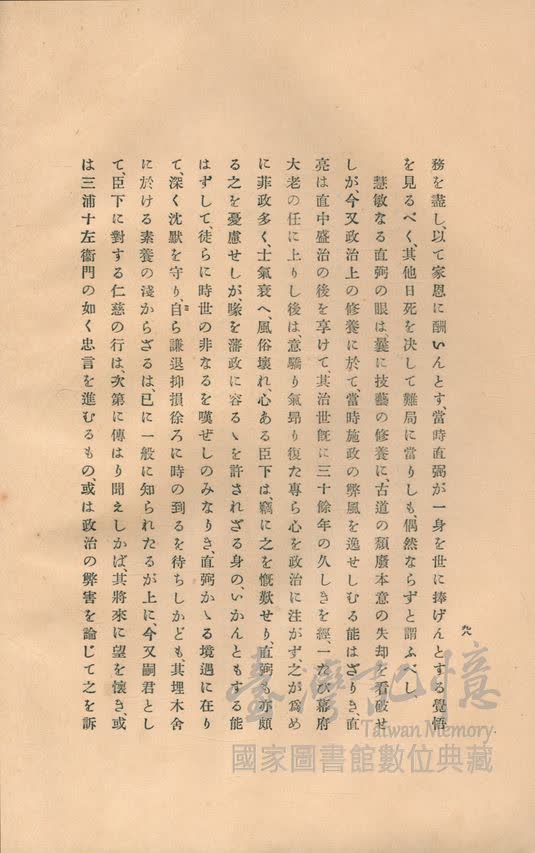 務を盡し、以て家恩に酬いんとす、當時直弼が一身を世に捧げんとする覺悟
を見るべく、其他日死を決して難局に當りしも、偶然ならずと謂ふべし
慧敏なる直弼の眼は、曩に技藝の修養に、古道の頽廢本意の失却を看破せ
しが、今又政治上の修養に於て、當時施政の弊風を逸せしむる能はざりき、直
亮は直中盛治の後を享けて、其治世旣に三十餘年の久しきを經、一たび幕府
大老の任に上りし後は、意驕り氣昻り復た專ら心を政治に注がず、之が爲め
に非政多く、士氣衰へ、風俗壞れ、心ある臣下は、竊に之を慨歎せり、直弼も亦頗
る之を憂慮せしが、喙を藩政に容るゝを許されざる身の、いかんともする能
はずして、徒らに時世の非なるを嘆ぜしのみなりき、直弼かゝる境遇に在り
て、深く沈默を守り、自ら謙退抑損徐ろに時の到るを待ちしかども、其埋木舍
に於ける素養の淺からざるは、已に一般に知られたるが上に、今又嗣君とし
て、臣下に對する仁慈の行は、次第に傳はり聞えしかば、其將來に望を懷き、或
は三浦十左衞門の如く忠言を進むるもの、或は政治の弊害を論じて之を訴
九八
臺灣記憶
Taiwan Memory
國家圖書館數位典藏